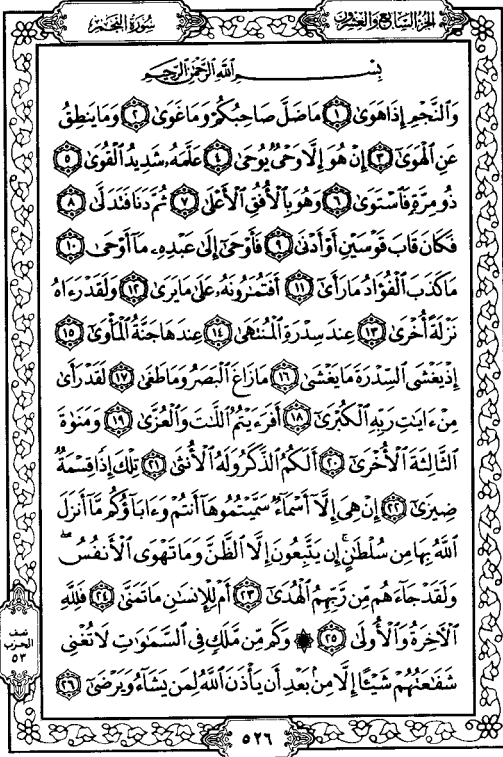 الجزء السابع والعشرون
سورة النجم
بِسْمِ اللَّهِ الرَّحْمَٰنِ الرَّحِيمِ
وَالنَّجْمِ إِذَا هَوَىٰ ١ مَا ضَلَّ صَاحِبُكُمْ وَمَا غَوَىٰ ٢ وَمَا يَنطِقُ
عَنِ الْهَوَىٰ ٣ إِنْ هُوَ إِلَّا وَحْيٌ يُوحَىٰ ٤ عَلَّمَهُ شَدِيدُ الْقُوَىٰ ٥
ذُو مِرَّةٍ فَاسْتَوَىٰ ٦ وَهُوَ بِالْأُفُقِ الْأَعْلَىٰ ٧ ثُمَّ دَنَا فَتَدَلَّىٰ ٨
فَكَانَ قَابَ قَوْسَيْنِ أَوْ أَدْنَىٰ ٩ فَأَوْحَىٰ إِلَىٰ عَبْدِهِ مَا أَوْحَىٰ ١٠
مَا كَذَبَ الْفُؤَادُ مَا رَأَىٰ ١١ أَفَتُمَارُونَهُ عَلَىٰ مَا يَرَىٰ ١٢ وَلَقَدْ رَآهُ
نَزْلَةً أُخْرَىٰ ١٣ عِندَ سِدْرَةِ الْمُنتَهَىٰ ١٤ عِندَهَا جَنَّةُ الْمَأْوَىٰ ١٥
إِذْ يَغْشَى السِّدْرَةَ مَا يَغْشَىٰ ١٦ مَا زَاغَ الْبَصَرُ وَمَا طَغَىٰ ١٧ لَقَدْ رَأَىٰ
مِنْ آيَاتِ رَبِّهِ الْكُبْرَىٰ ١٨ أَفَرَأَيْتُمُ اللَّاتَ وَالْعُزَّىٰ ١٩ وَمَنَاةَ
الثَّالِثَةَ الْأُخْرَىٰ ٢٠ أَلَكُمُ الذَّكَرُ وَلَهُ الْأُنثَىٰ ٢١ تِلْكَ إِذًا قِسْمَةٌ
ضِيزَىٰ ٢٢ إِنْ هِيَ إِلَّا أَسْمَاءٌ سَمَّيْتُمُوهَا أَنتُمْ وَآبَاؤُكُم مَّا أَنزَلَ
اللَّهُ بِهَا مِن سُلْطَانٍ ۚ إِن يَتَّبِعُونَ إِلَّا الظَّنَّ وَمَا تَهْوَى الْأَنفُسُ ۖ
وَلَقَدْ جَاءَهُم مِّن رَّبِّهِمُ الْهُدَىٰ ٢٣ أَمْ لِلْإِنسَانِ مَا تَمَنَّىٰ ٢٤ فَلِلَّهِ
الْآخِرَةُ وَالْأُولَىٰ ٢٥ ۞ وَكَم مِّن مَّلَكٍ فِي السَّمَاوَاتِ لَا تُغْنِي
شَفَاعَتُهُمْ شَيْئًا إِلَّا مِن بَعْدِ أَن يَأْذَنَ اللَّهُ لِمَن يَشَاءُ وَيَرْضَىٰ ٢٦
نصف
الحزب
٥٣
٥٢٦